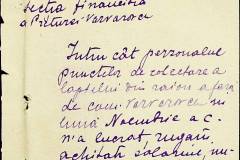 secția financiară
a Pieturei Varvarova
Întru cât personalul
punctelor de colectare a
laptelui din raion a fost
de com. Varvarova în
luna Noembrie a.c.
n'a lucrat rugăm
achitați salariul, nu-